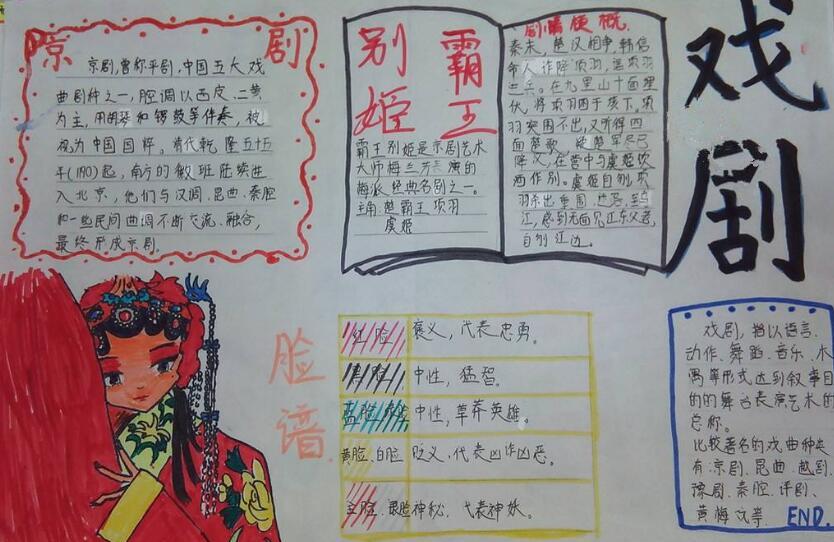 京 剧
京剧,曾称平剧,中国五大戏
曲剧种之一,腔调以西皮、二黄
为主,用胡琴和锣鼓等伴奏,被
视为中国国粹。清代乾隆五十五
年(1790)起,南方的徽班陆续进
入北京,他们与汉调、昆曲、秦腔
和一些民间曲调不断交流、融合,
最终形成京剧。
霸王
别姬
霸王别姬是京剧艺术
大师梅兰芳表演的
梅派经典名剧之一。
主角:楚霸王项羽
虞姬
剧情梗概
秦末,楚汉相争,韩信
命人诈降项羽,
兵。在九里山十面埋
伏,将项羽困于垓下。项
羽突围不出,又听得四
面楚歌,疑楚军尽已
降汉,在营中与虞姬饮
酒作别。虞姬自刎,项
羽杀出重围,至乌
江,感到无面见江东父老,
自刎江边。
戏剧
脸谱
红脸 褒义,代表忠勇。
黑脸 中性,猛智。
蓝脸 中性,草莽英雄。
黄脸、白脸 贬义,代表凶诈凶恶。
金脸、银脸 神秘,代表神妖。
戏剧,指以语言、
动作、舞蹈、音乐、木
偶等形式达到叙事目
的的舞台表演艺术的
总称。
比较著名的戏曲种类
有:京剧、昆曲、越剧、
豫剧、秦腔、评剧、
黄梅戏等. END.